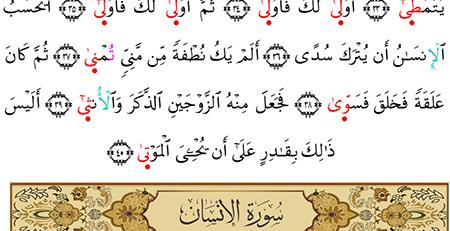 يَتَمَطَّىٰٓ ﴿٣٣﴾ أَوۡلَىٰ لَكَ فَأَوۡلَىٰ ﴿٣٤﴾ ثُمَّ أَوۡلَىٰ لَكَ فَأَوۡلَىٰٓ ﴿٣٥﴾ أَيَحۡسَبُ
ٱلۡإِنسَٰنُ أَن يُتۡرَكَ سُدًى ﴿٣٦﴾ أَلَمۡ يَكُ نُطۡفَةٗ مِّن مَّنِيّٖ تُمۡنَىٰ ﴿٣٧﴾ ثُمَّ كَانَ
عَلَقَةٗ فَخَلَقَ فَسَوَّىٰ ﴿٣٨﴾ فَجَعَلَ مِنۡهُ ٱلزَّوۡجَيۡنِ ٱلذَّكَرَ وَٱلۡأُنثَىٰٓ ﴿٣٩﴾ أَلَيۡسَ
ذَٰلِكَ بِقَٰدِرٍ عَلَىٰٓ أَن يُحۡـِۧيَ ٱلۡمَوۡتَىٰ ﴿٤٠﴾
سُورَةُ الإِنسَانِ